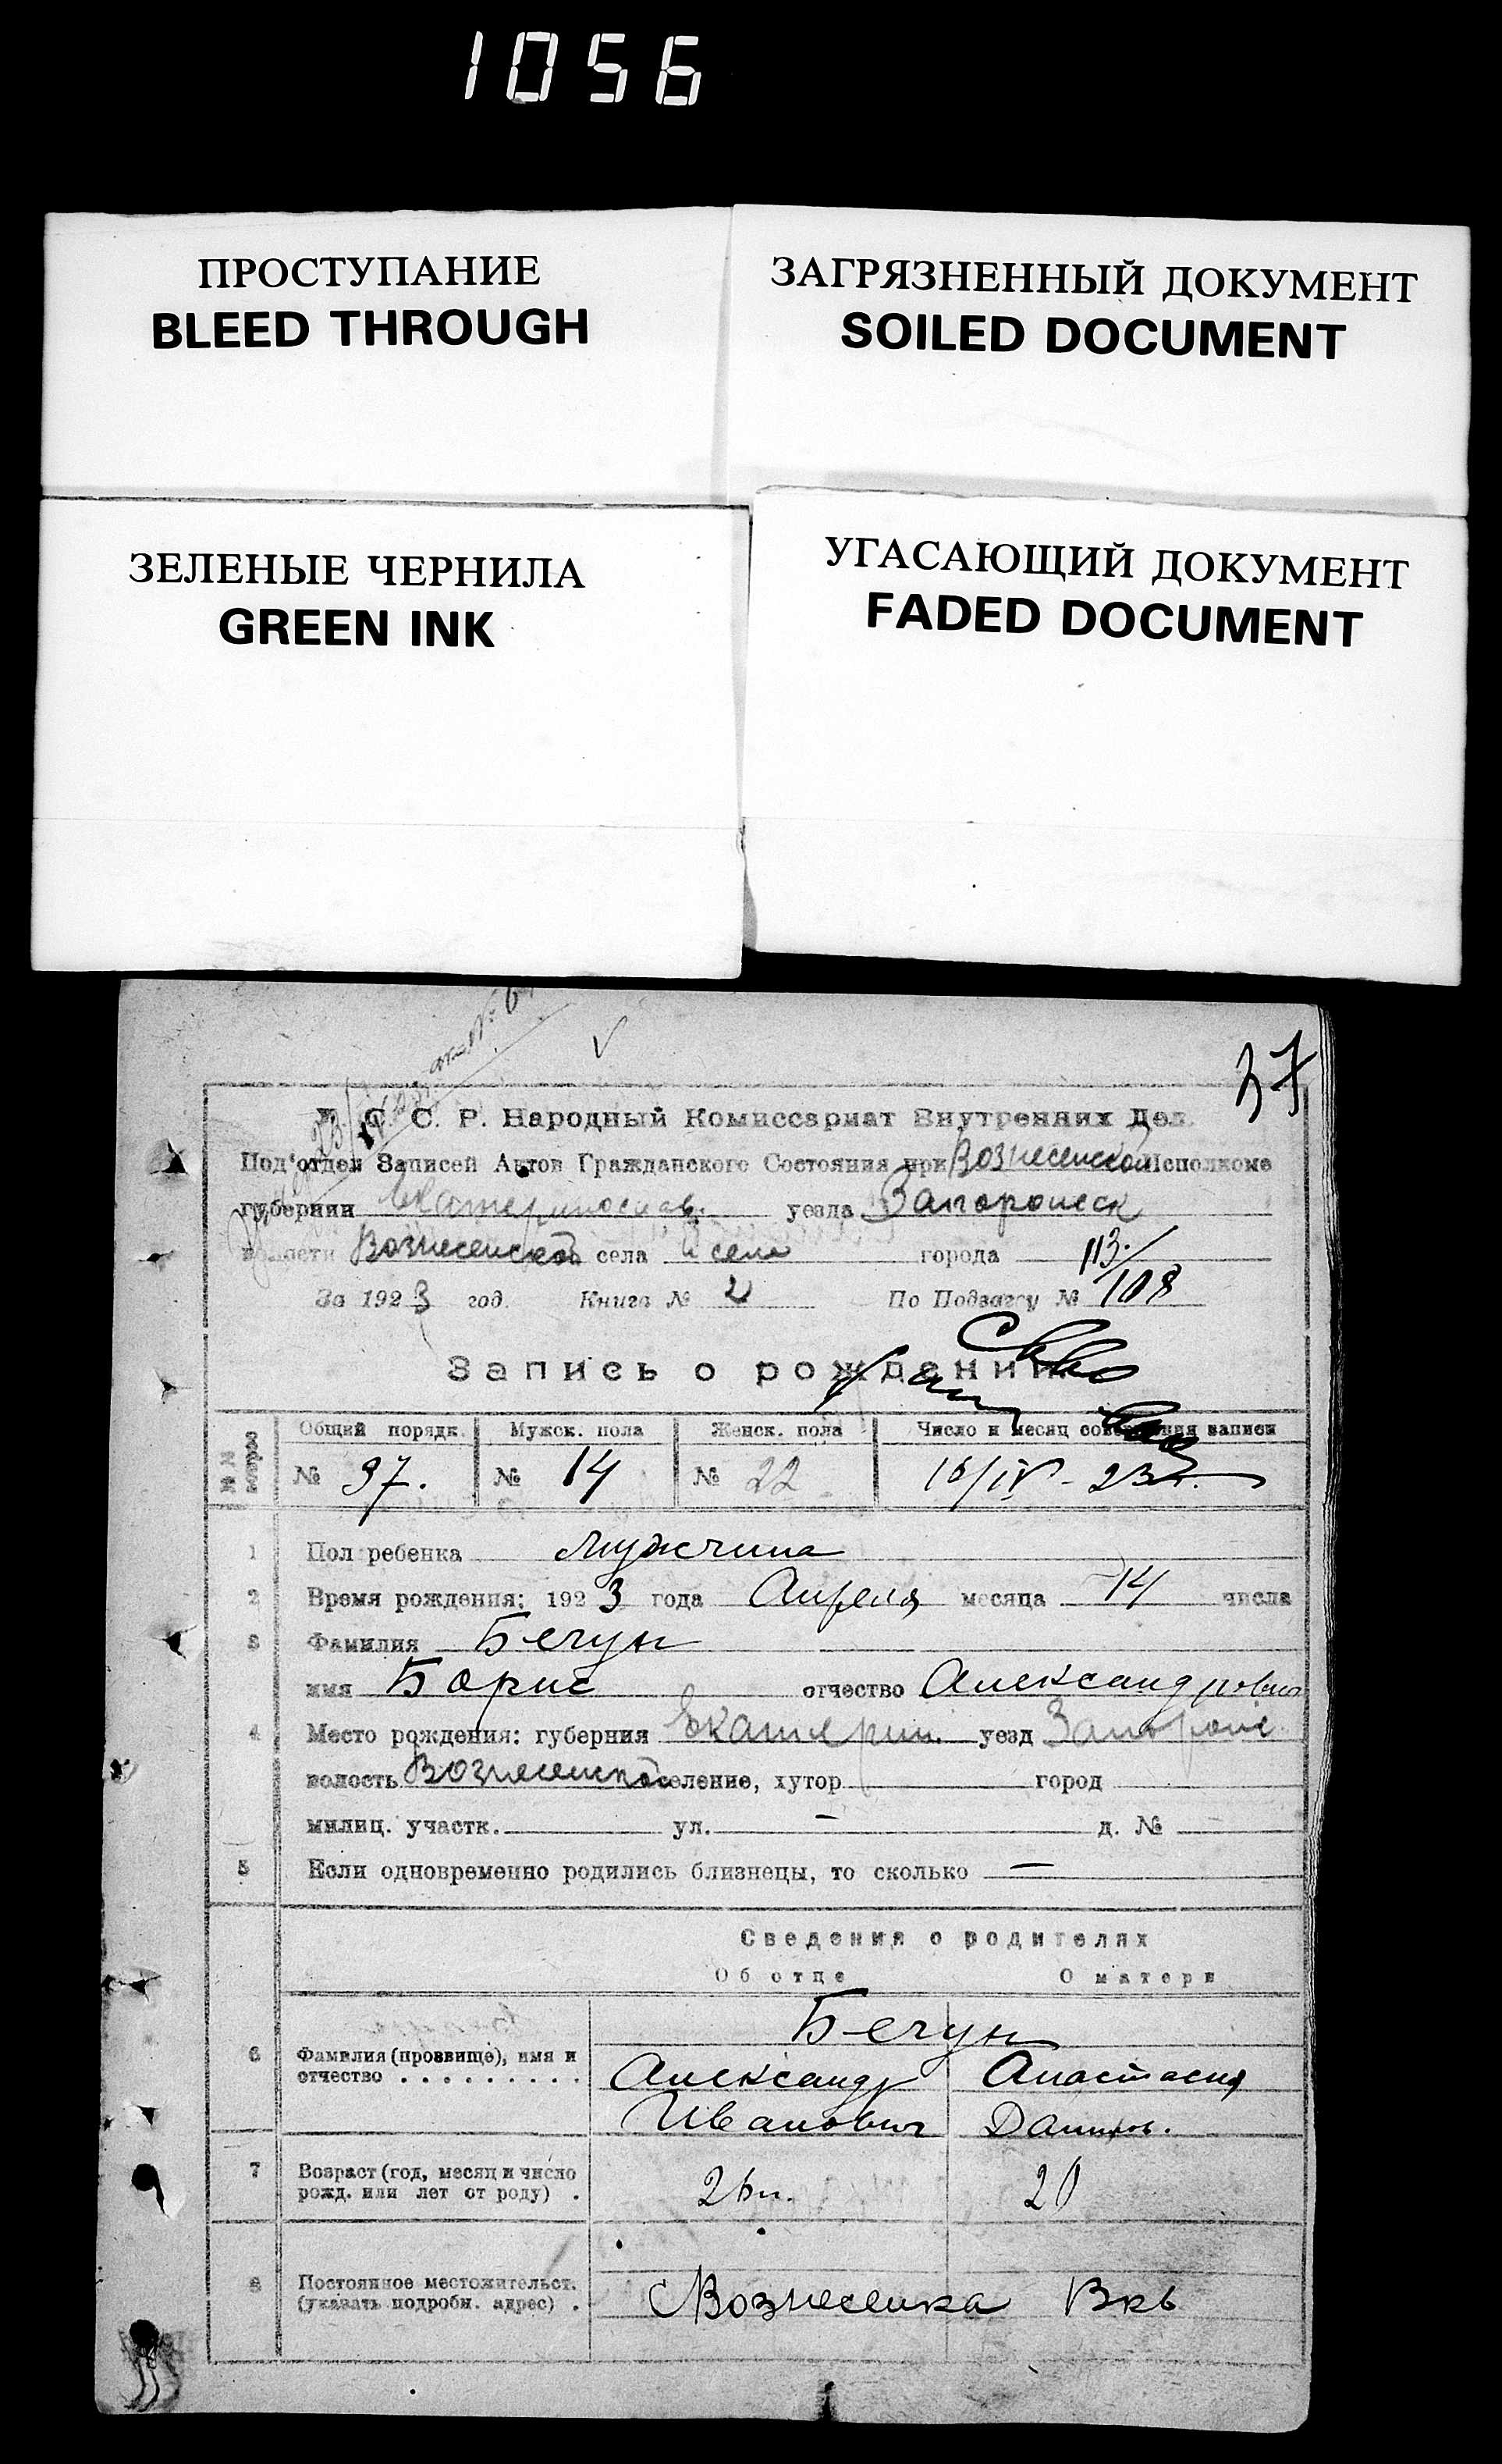 1056
ПРОСТУПАНИЕ
BLEED THROUGH
ЗАГРЯЗНЕННЫЙ ДОКУМЕНТ
SOILED DOCUMENT
ЗЕЛЕНЫЕ ЧЕРНИЛА
GREEN INK
УГАСАЮЩИЙ ДОКУМЕНТ
FADED DOCUMENT
37
С. С. Р. Народный Комиссариат Внутренних Дел.
Под'отдел Записей Актов Гражданского Состояния при Вознесенской Исполкоме
губернии Екатеринослав. уезда Запорожск
волости Вознесенской села и села города 113./
За 1923 год. Книга № 2 По Подзагсу № 108
Запись о рождении
№№ Общий порядк. Мужск. пола Женск. пола Число и месяц совершения записи
№ 37. № 14 № 22 16/IV - 23 г.
1 Пол ребенка мужчина
2 Время рождения: 1923 года Апреля месяца 14 числа
3 Фамилия Бегун
имя Борис отчество Александрович
4 Место рождения: губерния Екатерин. уезд Запорож.
волость Вознесенской селение, хутор город
милиц. участк. ул. — д. №
5 Если одновременно родились близнецы, то сколько —
Сведения о родителях
Об отце О матери
Бегун
6 Фамилия (прозвище), имя и отчество . . . . . . . . . Александр Анастасия
Иванович Данилов.
7 Возраст (год, месяц и число рожд. или лет от роду) . 26 л. 20
8 Постоянное местожительст. (указать подробн. адрес) . С Вознесенка Екб